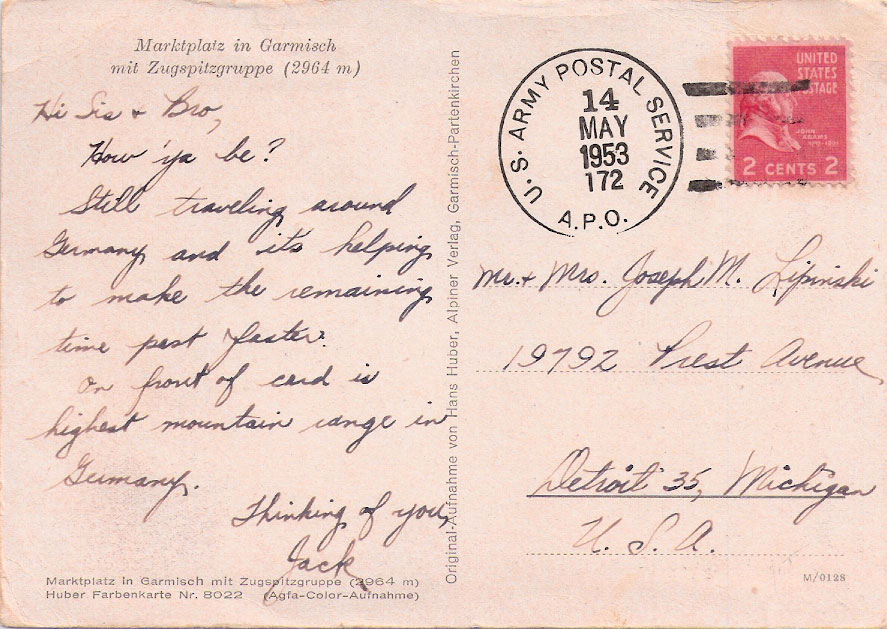 Marktplatz in Garmisch
mit Zugspitzgruppe (2964 m)
Hi Sis + Bro,
How 'ya be?
Still traveling around
Germany and it's helping
to make the remaining
time past faster.
On front of card is
highest mountain range in
Germany.
Thinking of you,
Jack
Marktplatz in Garmisch mit Zugspitzgruppe (2964 m)
Huber Farbenkarte Nr. 8022 (Agfa-Color-Aufnahme)
Original-Aufnahme von Hans Huber, Alpiner Verlag, Garmisch-Partenkirchen
U.S. ARMY POSTAL SERVICE
14
MAY
1953
172
A.P.O.
UNITED
STATES
POSTAGE
JOHN
ADAMS
2 CENTS 2
Mr. + Mrs. Joseph M. Lipinski
19792 Prest Avenue
Detroit 35, Michigan
U. S. A.
M/0128